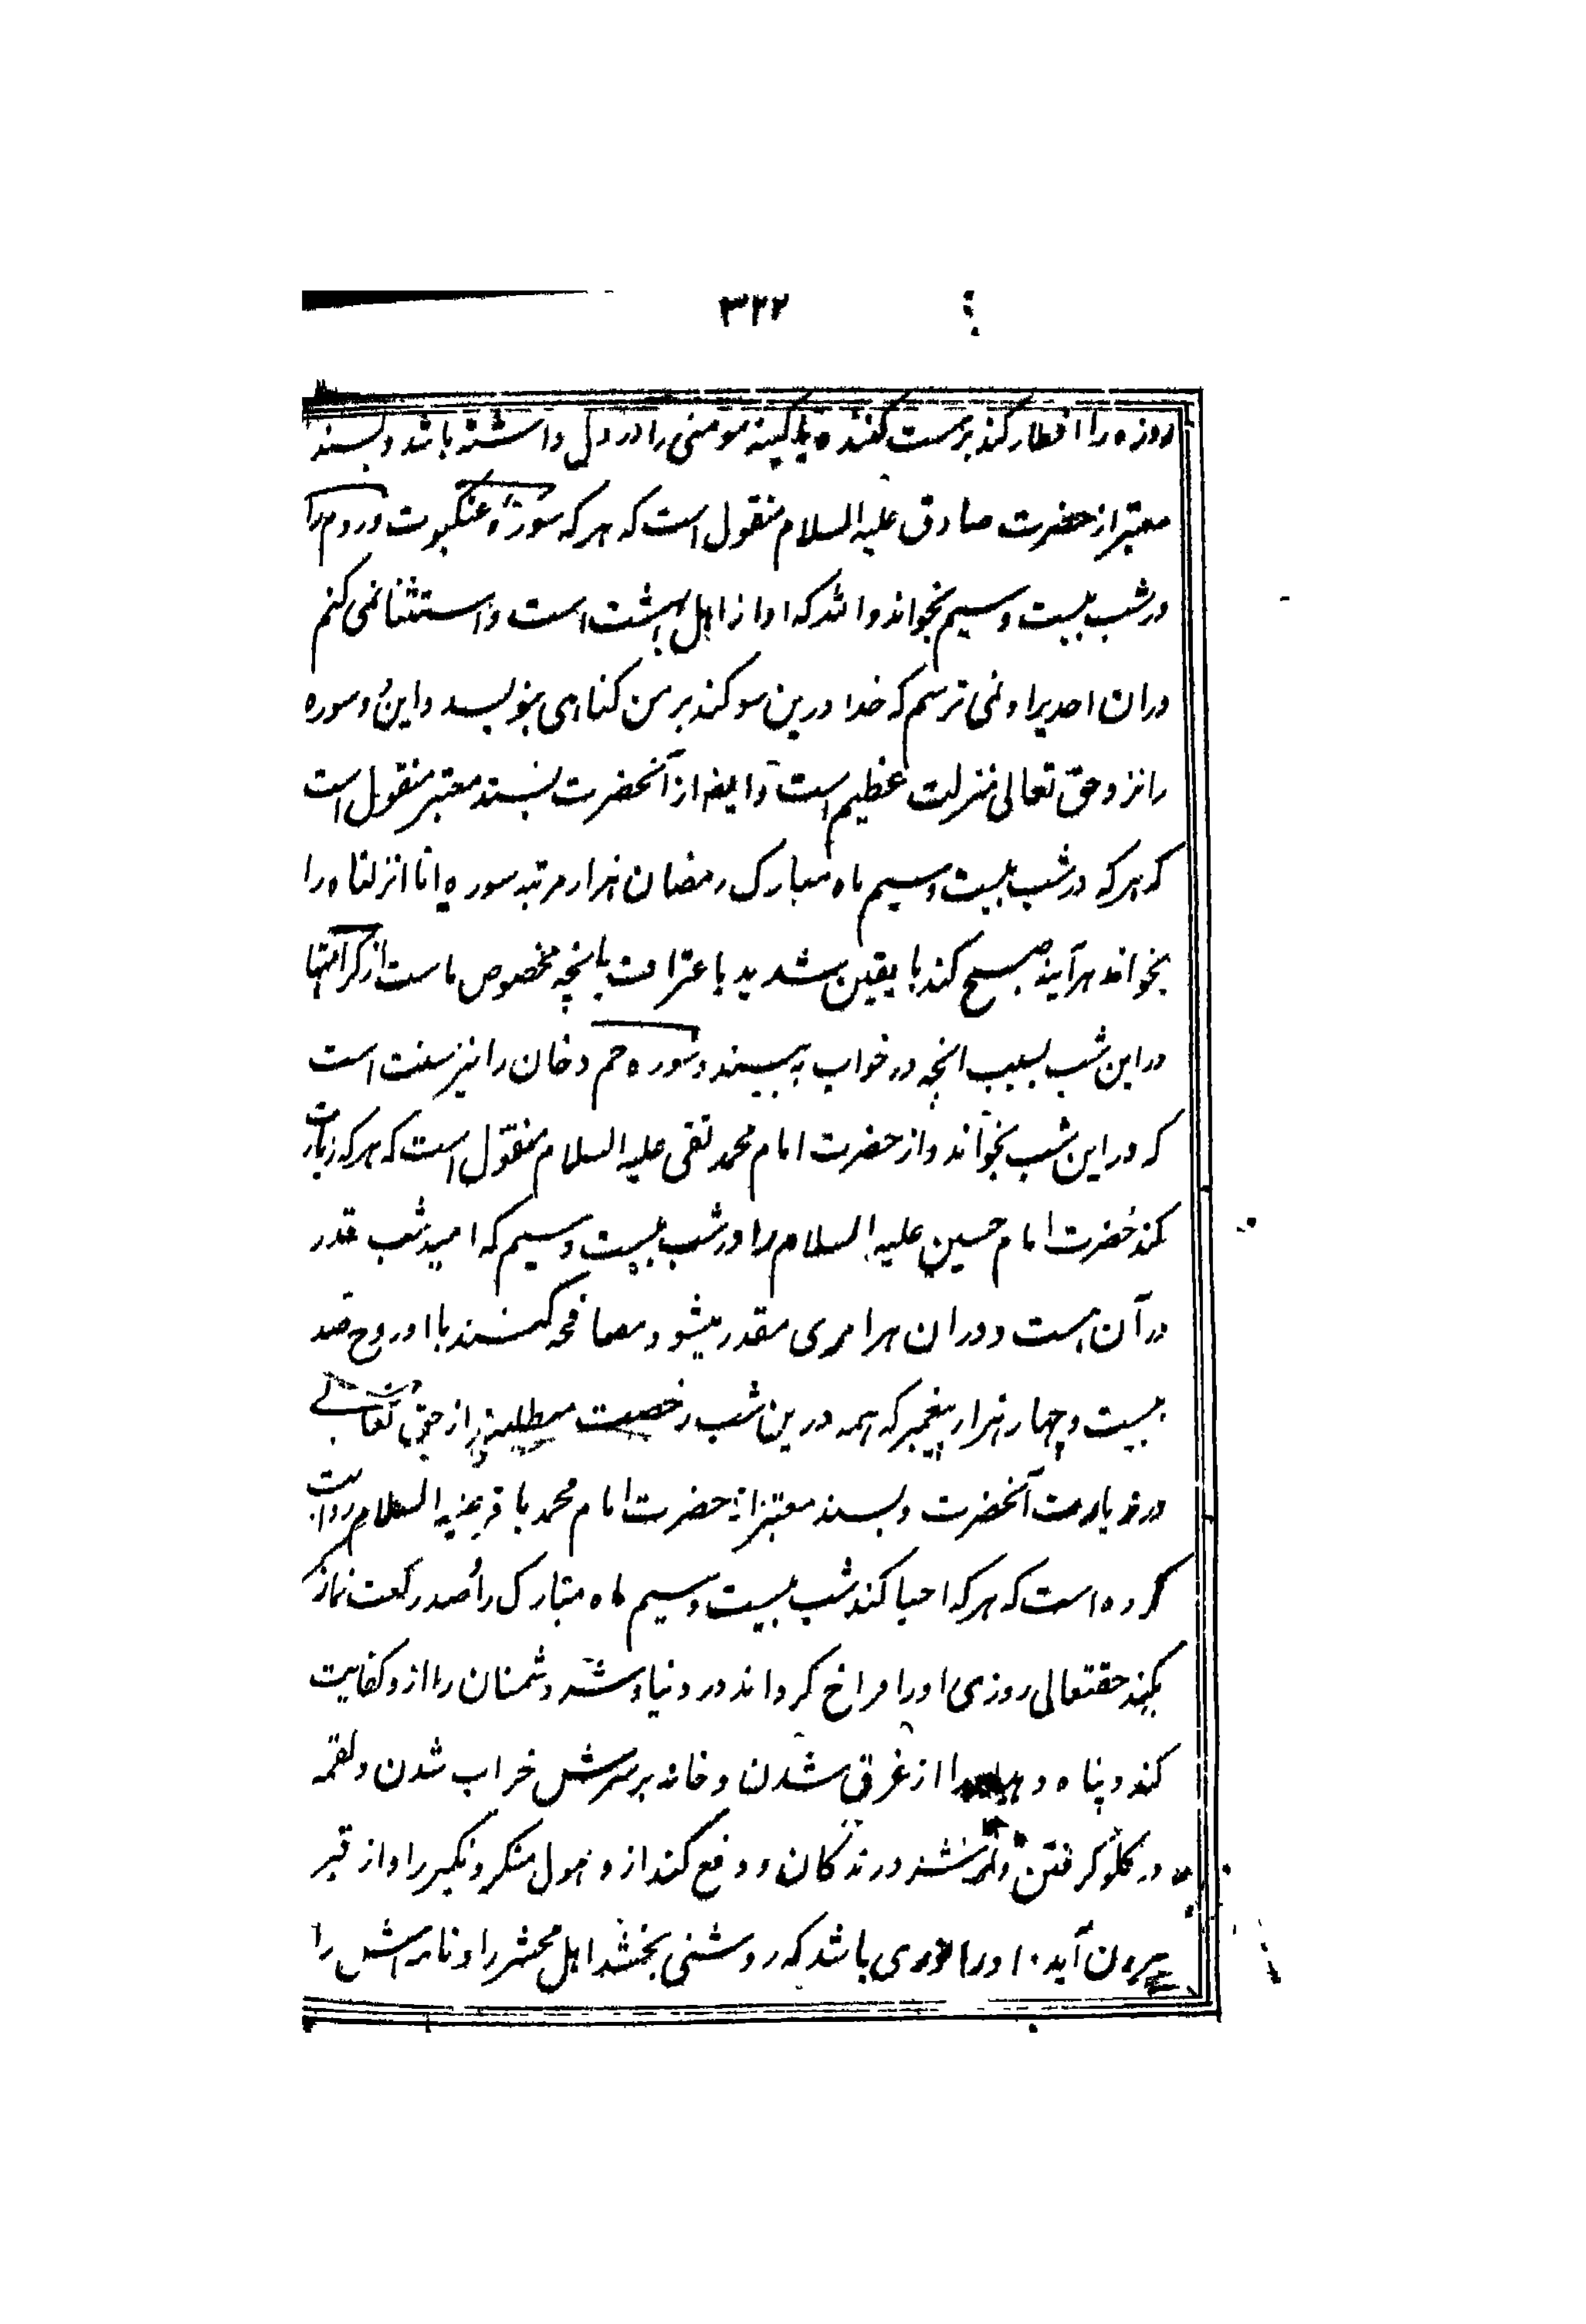 ۳۲۲
روزه را افطار کند بر مست کننده یا کینه مومنی را در دل داشته باشد و بسند
معتبر از حضرت صادق علیه السلام منقول است که هر که سورۀ عنکبوت و روم را
در شب بیست و سیم بخواند والله که او از اهل بهشت است و استثنا نمی کنم
در ان احدیرا و نمی ترسم که خدا درین سوکند بر من کناهی بنویسد و این دو سوره
را نزد حق تعالی منزلت عظیم است و ایضا از آنحضرت بسند معتبر منقول است
که هر که در شب بیست و سیم ماه مبارک رمضان هزار مرتبه سوره انا انزلناه را
بخواند هر آینه صبح کند با یقین شدید باعتراف بانچه مخصوص ماست از کرامتها
در این شب بسبب انچه در خواب به بیند و سوره حم دخان را نیز سنت است
که در این شب بخواند و از حضرت امام محمد تقی علیه السلام منقول است که هر که زیارت
کند حضرت امام حسین علیه السلام را در شب بیست و سیم که امید شب قدر
در آن هست و در ان هر امری مقدر میشود مصافحه کنند با او روح صد
بیست و چهار هزار پیغمبر که همه درین شب رخصت میطلبند از حق تعالے
در زیارت آنحضرت و بسند معتبر از حضرت امام محمد باقر علیه السلام روایت
کرده است که هر که احیا کند شب بیست و سیم ماه مبارک را و صد رکعت نماز
بکند حقتعالی روزی او را فراخ کرداند در دنیا و شر دشمنان را از و کفایت
کند و پناه دهد از غرق شدن و خانه بر سرش خراب شدن و لقمه
در کلو کرفتن و شر درندکان و دفع کند از و هول منکر و نکیر را و از قبر
بیرون آید و او را نوری باشد که روشنی بخشد اهل محشر را و نامه اش را